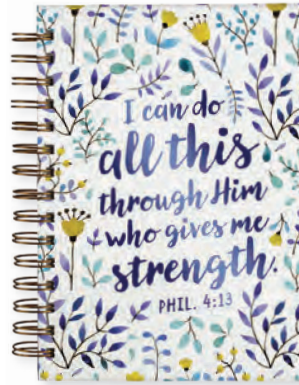 I can do
all this
through Him
who gives me
strength.
PHIL. 4:13